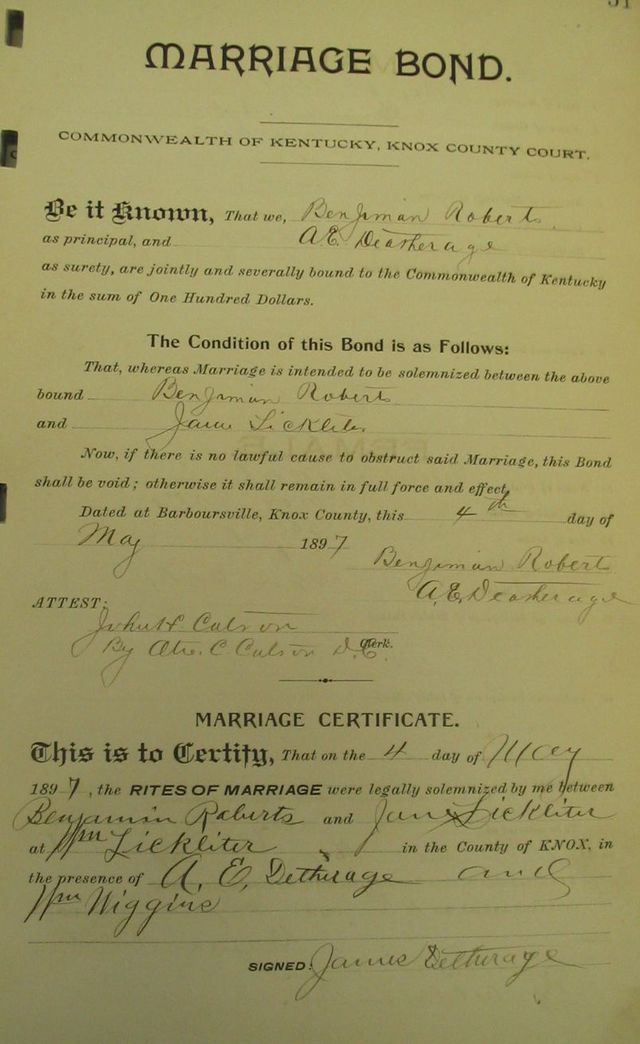 51
MARRIAGE BOND.
COMMONWEALTH OF KENTUCKY, KNOX COUNTY COURT.
Be it Known, That we, Benjiman Roberts
as principal, and A.E. Deatherage
as surety, are jointly and severally bound to the Commonwealth of Kentucky
in the sum of One Hundred Dollars.
The Condition of this Bond is as Follows:
That, whereas Marriage is intended to be solemnized between the above
bound Benjiman Roberts
and Jane Lickliter
Now, if there is no lawful cause to obstruct said Marriage, this Bond
shall be void; otherwise it shall remain in full force and effect,
Dated at Barboursville, Knox County, this 4th day of
May 1897
Benjiman Roberts
A.E. Deatherage
ATTEST:
John H. Catron
By C. Catron D.C. Clerk.
MARRIAGE CERTIFICATE.
This is to Certify, That on the 4 day of May
1897, the RITES OF MARRIAGE were legally solemnized by me between
Benjamin Roberts and Jane Lickliter
at Wm Lickliter in the County of KNOX, in
the presence of A. E. Detherage and
Wm Wiggins
SIGNED: James Detherage